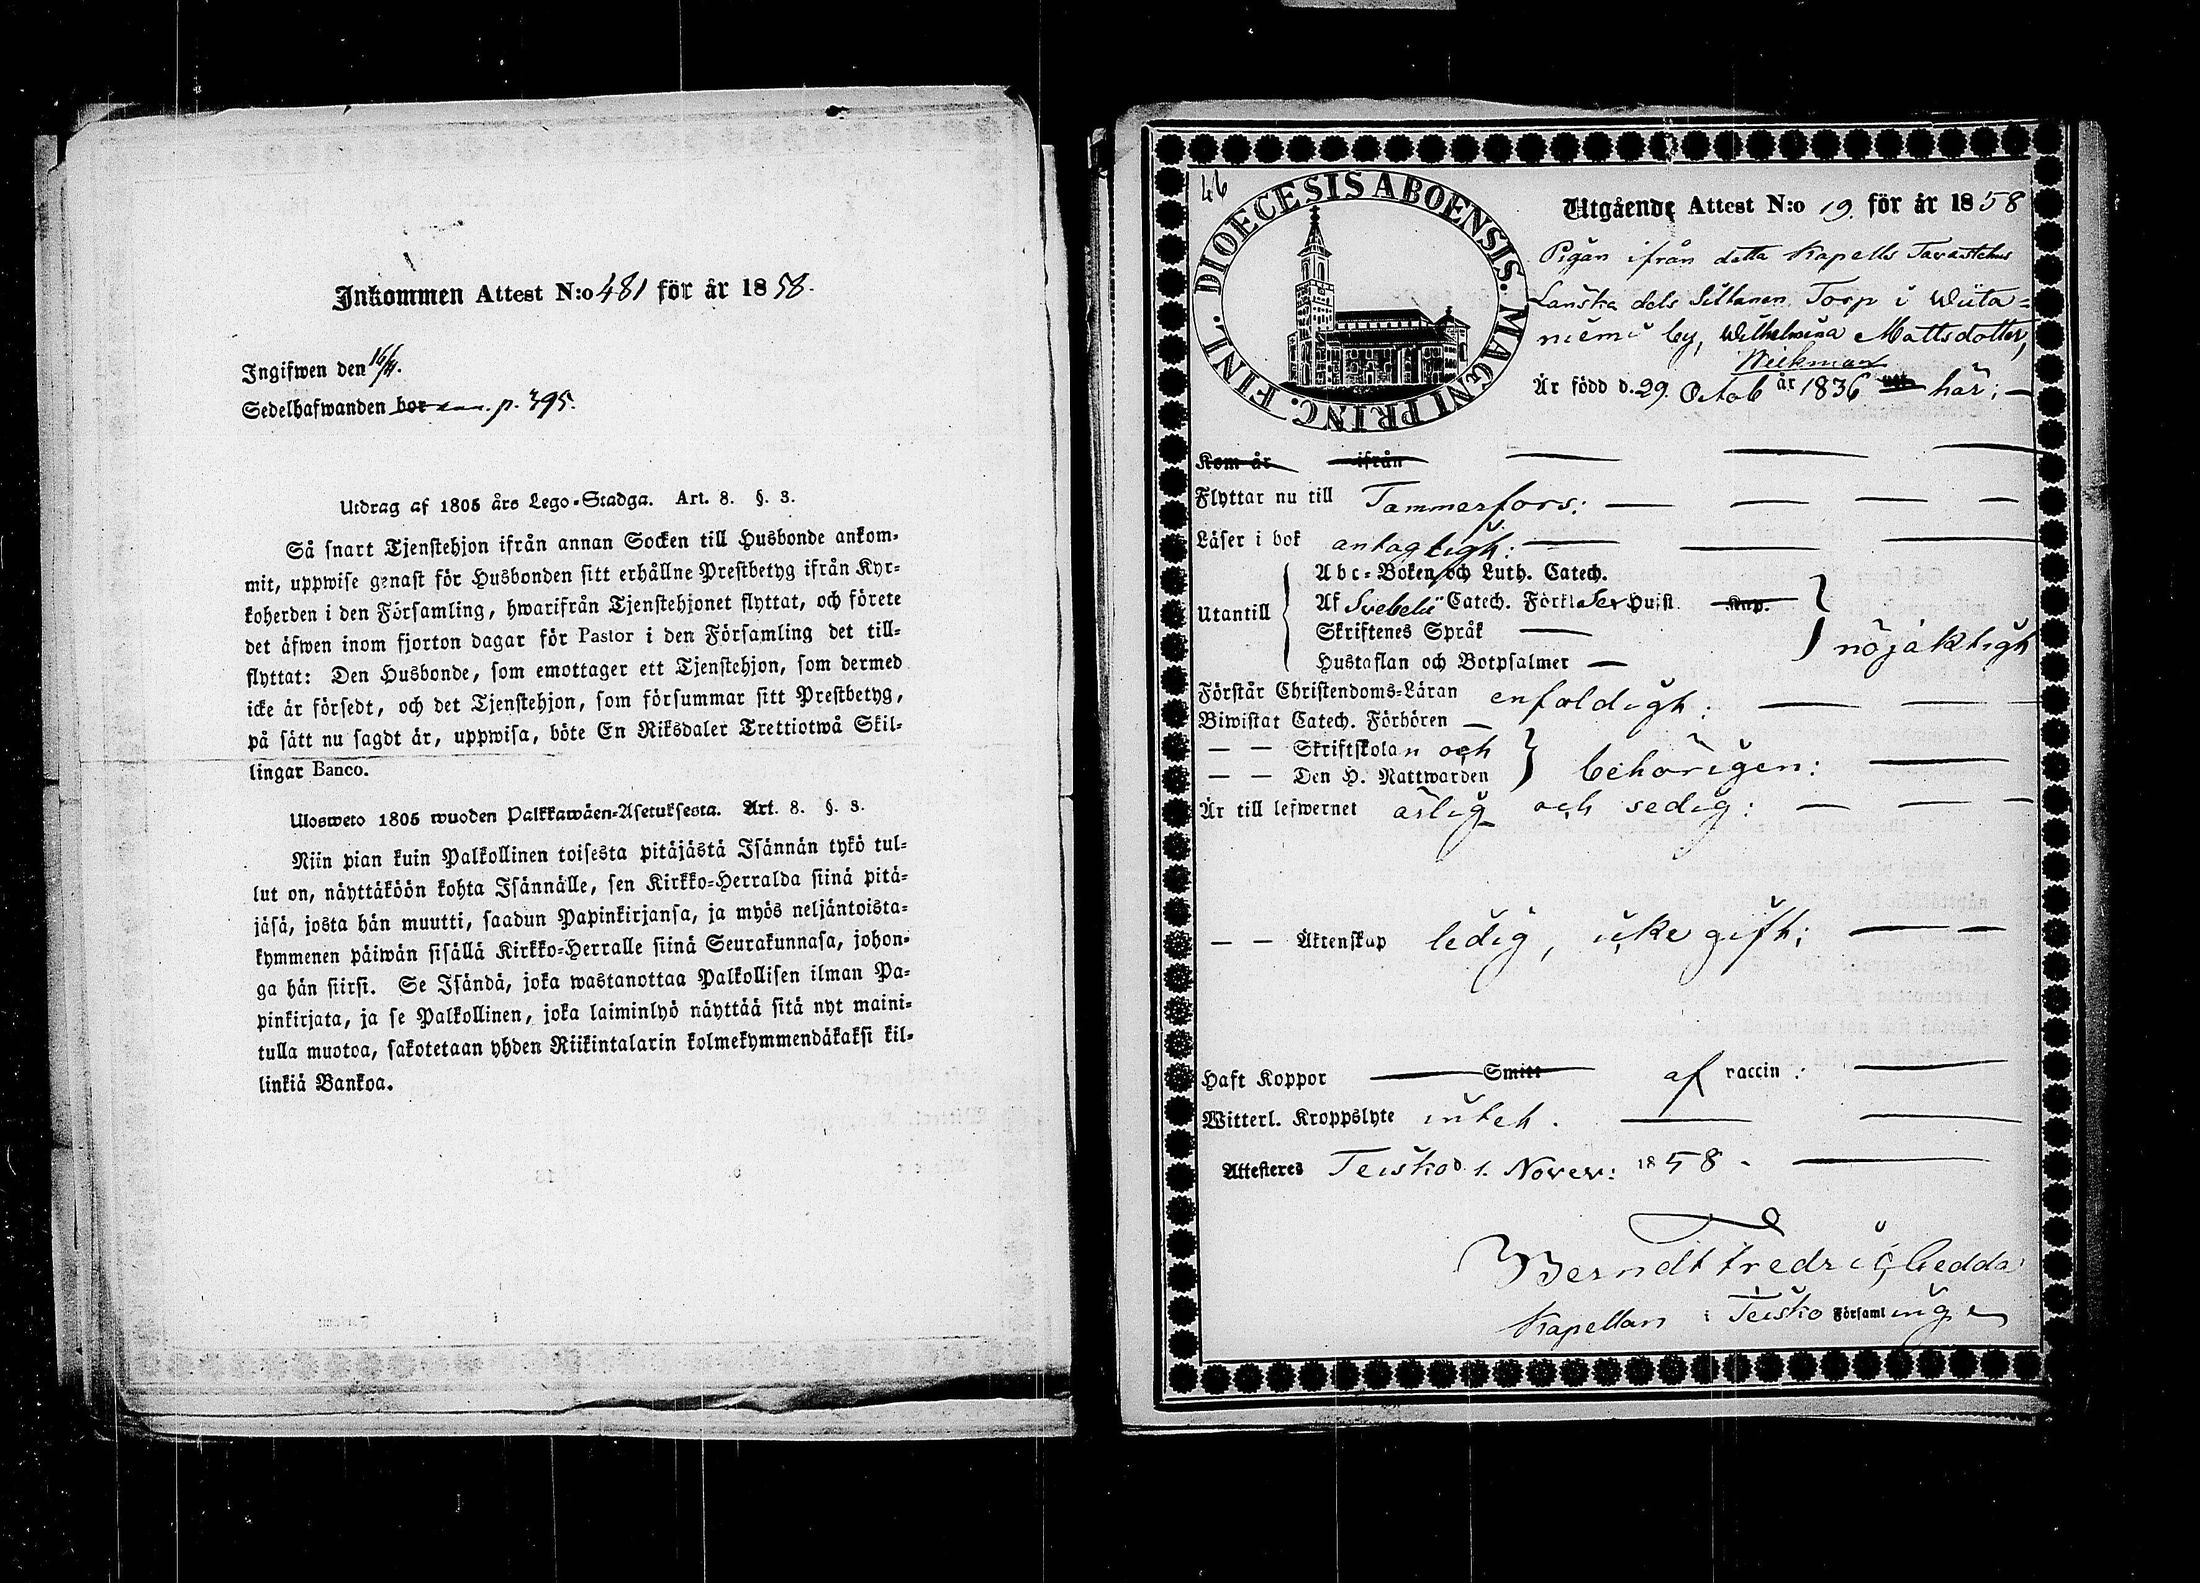 Inkommen Attest N:o 481 för år 1858.
Ingifwen den 16/11.
Sedelhafwanden bor p. 395.
Utdrag af 1805 års Lego-Stadga. Art. 8. §. 3.
Så snart Tjenstehjon ifrån annan Socken till Husbonde ankom-
mit, uppwise genast för Husbonden sitt erhållne Prestbetyg ifrån Kyr-
koherden i den Församling, hwarifrån Tjenstehjonet flyttat, och förete
det äfwen inom fjorton dagar för Pastor i den Församling det till-
flyttat: Den Husbonde, som emottager ett Tjenstehjon, som dermed
icke är försedt, och det Tjenstehjon, som försummar sitt Prestbetyg,
på sätt nu sagdt är, uppwisa, böte En Riksdaler Trettiotwå Skil-
lingar Banco.
Ulosweto 1805 wuoden Palkkawäen-Asetuksesta. Art. 8. §. 3.
Niin pian kuin Palkollinen toisesta pitäjästä Isännän tykö tul-
lut on, näyttäköön kohta Isännälle, sen Kirkko-Herralda siinä pitä-
jäsä, josta hän muutti, saadun Papinkirjansa, ja myös neljäntoista-
kymmenen päiwän sisällä Kirkko-Herralle siinä Seurakunnasa, johon-
ga hän siirsi. Se Isändä, joka wastanottaa Palkollisen ilman Pa-
pinkirjata, ja se Palkollinen, joka laiminlyö näyttää sitä nyt maini-
tulla muotoa, sakotetaan yhden Riikintalarin kolmekymmendäkaksi kil-
linkiä Bankoa.
46
DIOECESIS ABOENSIS. MAGNI PRINC. FINL.
Utgående Attest N:o 19. för år 1858
Pigan ifrån detta Kapells Tavastehus
Länska dels Siltanen Torp i Wiita=
niemi by, Wilhelmina Mattsdotter,
Weckman
Är född d. 29. Octob år 1836 uti här; —
Kom år ifrån
Flyttar nu till Tammerfors: —
Läser i bok antagligt: —
Abc-Boken och Luth. Catech.
Utantill Af Svebelii Catech. Förklar Hufst. Kap.
Skriftenes Språk —
Hustaflan och Botpsalmer — nöjaktigt
Förstår Christendoms-Läran enfaldigt: —
Biwistat Catech. Förhören —
— — Skriftskolan och
— — Den H. Nattwarden behörigen: —
Är till lefwernet ärlig och sedig: —
— — Äktenskap ledig, icke gift; —
Haft Koppor Smitt af vaccin: —
Witterl. Kroppslyte intet. —
Attesteres Teisko d. 1. Novev: 1858. —
Berndt Fredric Gedda
Kapellan i Teisko Församling